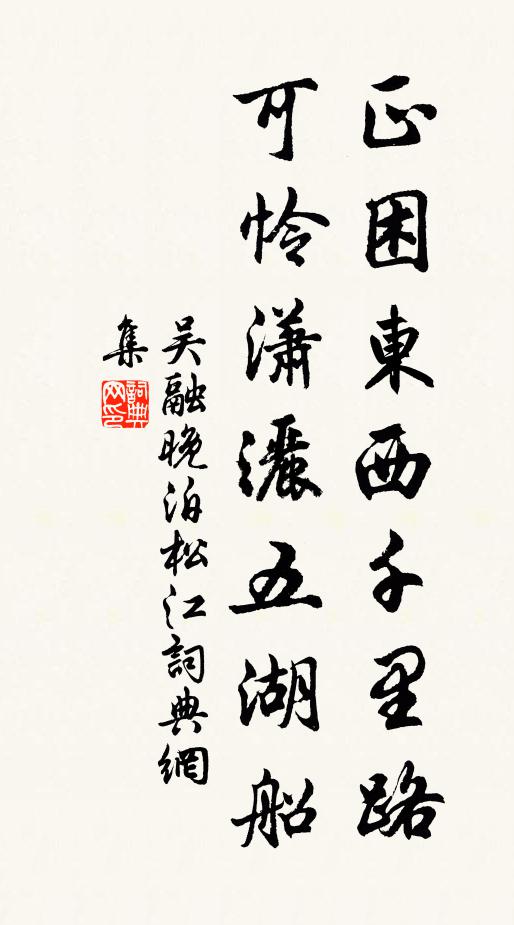 正困東西千里路
可怜瀟灑五湖船
吴融晚泊松江詞典網
集
詞典网印